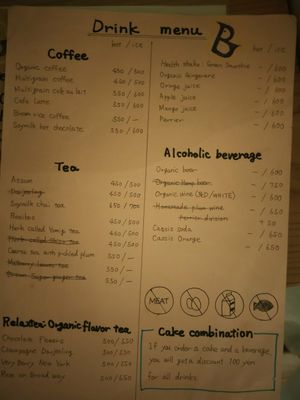 Drink menu
B
hot / ice
Coffee
Organic coffee 450 / 500
Multigrain coffee 450 / 500
Multigrain café au lait 550 / 600
Cafe latte 550 / 600
Brown rice coffee 550 / —
Soymilk hot chocolate 550 / 600
Tea
Assam 450 / 500
Darjeeling 450 / 500
Soymilk chai tea 650 / 700
Rooibos 450 / 500
Herb called Yomogi tea 450 / 500
450 / 500
Coarse tea with pickled plum 550 / —
Mulberry leaves tea 550 / —
Brown Sugar ginger tea 550 / —
Relaxtea: Organic flavor tea
Chocolate Flowers 500 / 550
Champagne Darjeeling 500 / 550
Very Berry New York 500 / 550
600 / 650
hot / ice
Health shake: Green Smoothie — / 600
Organic Gingerale — / 600
Orange juice — / 600
Apple juice — / 600
Mango juice — / 600
Perrier — / 600
Alcoholic beverage
Organic beer — / 600
Organic Hemp beer — / 750
Organic wine (RED/WHITE) — / 600
Homemade plum wine — / 650
Perrier division + 50
Cassis soda — / 650
Cassis Orange — / 650
MEAT
Cake combination
If you order a cake and a beverage,
you will get a discount 100 yen
for all drinks.